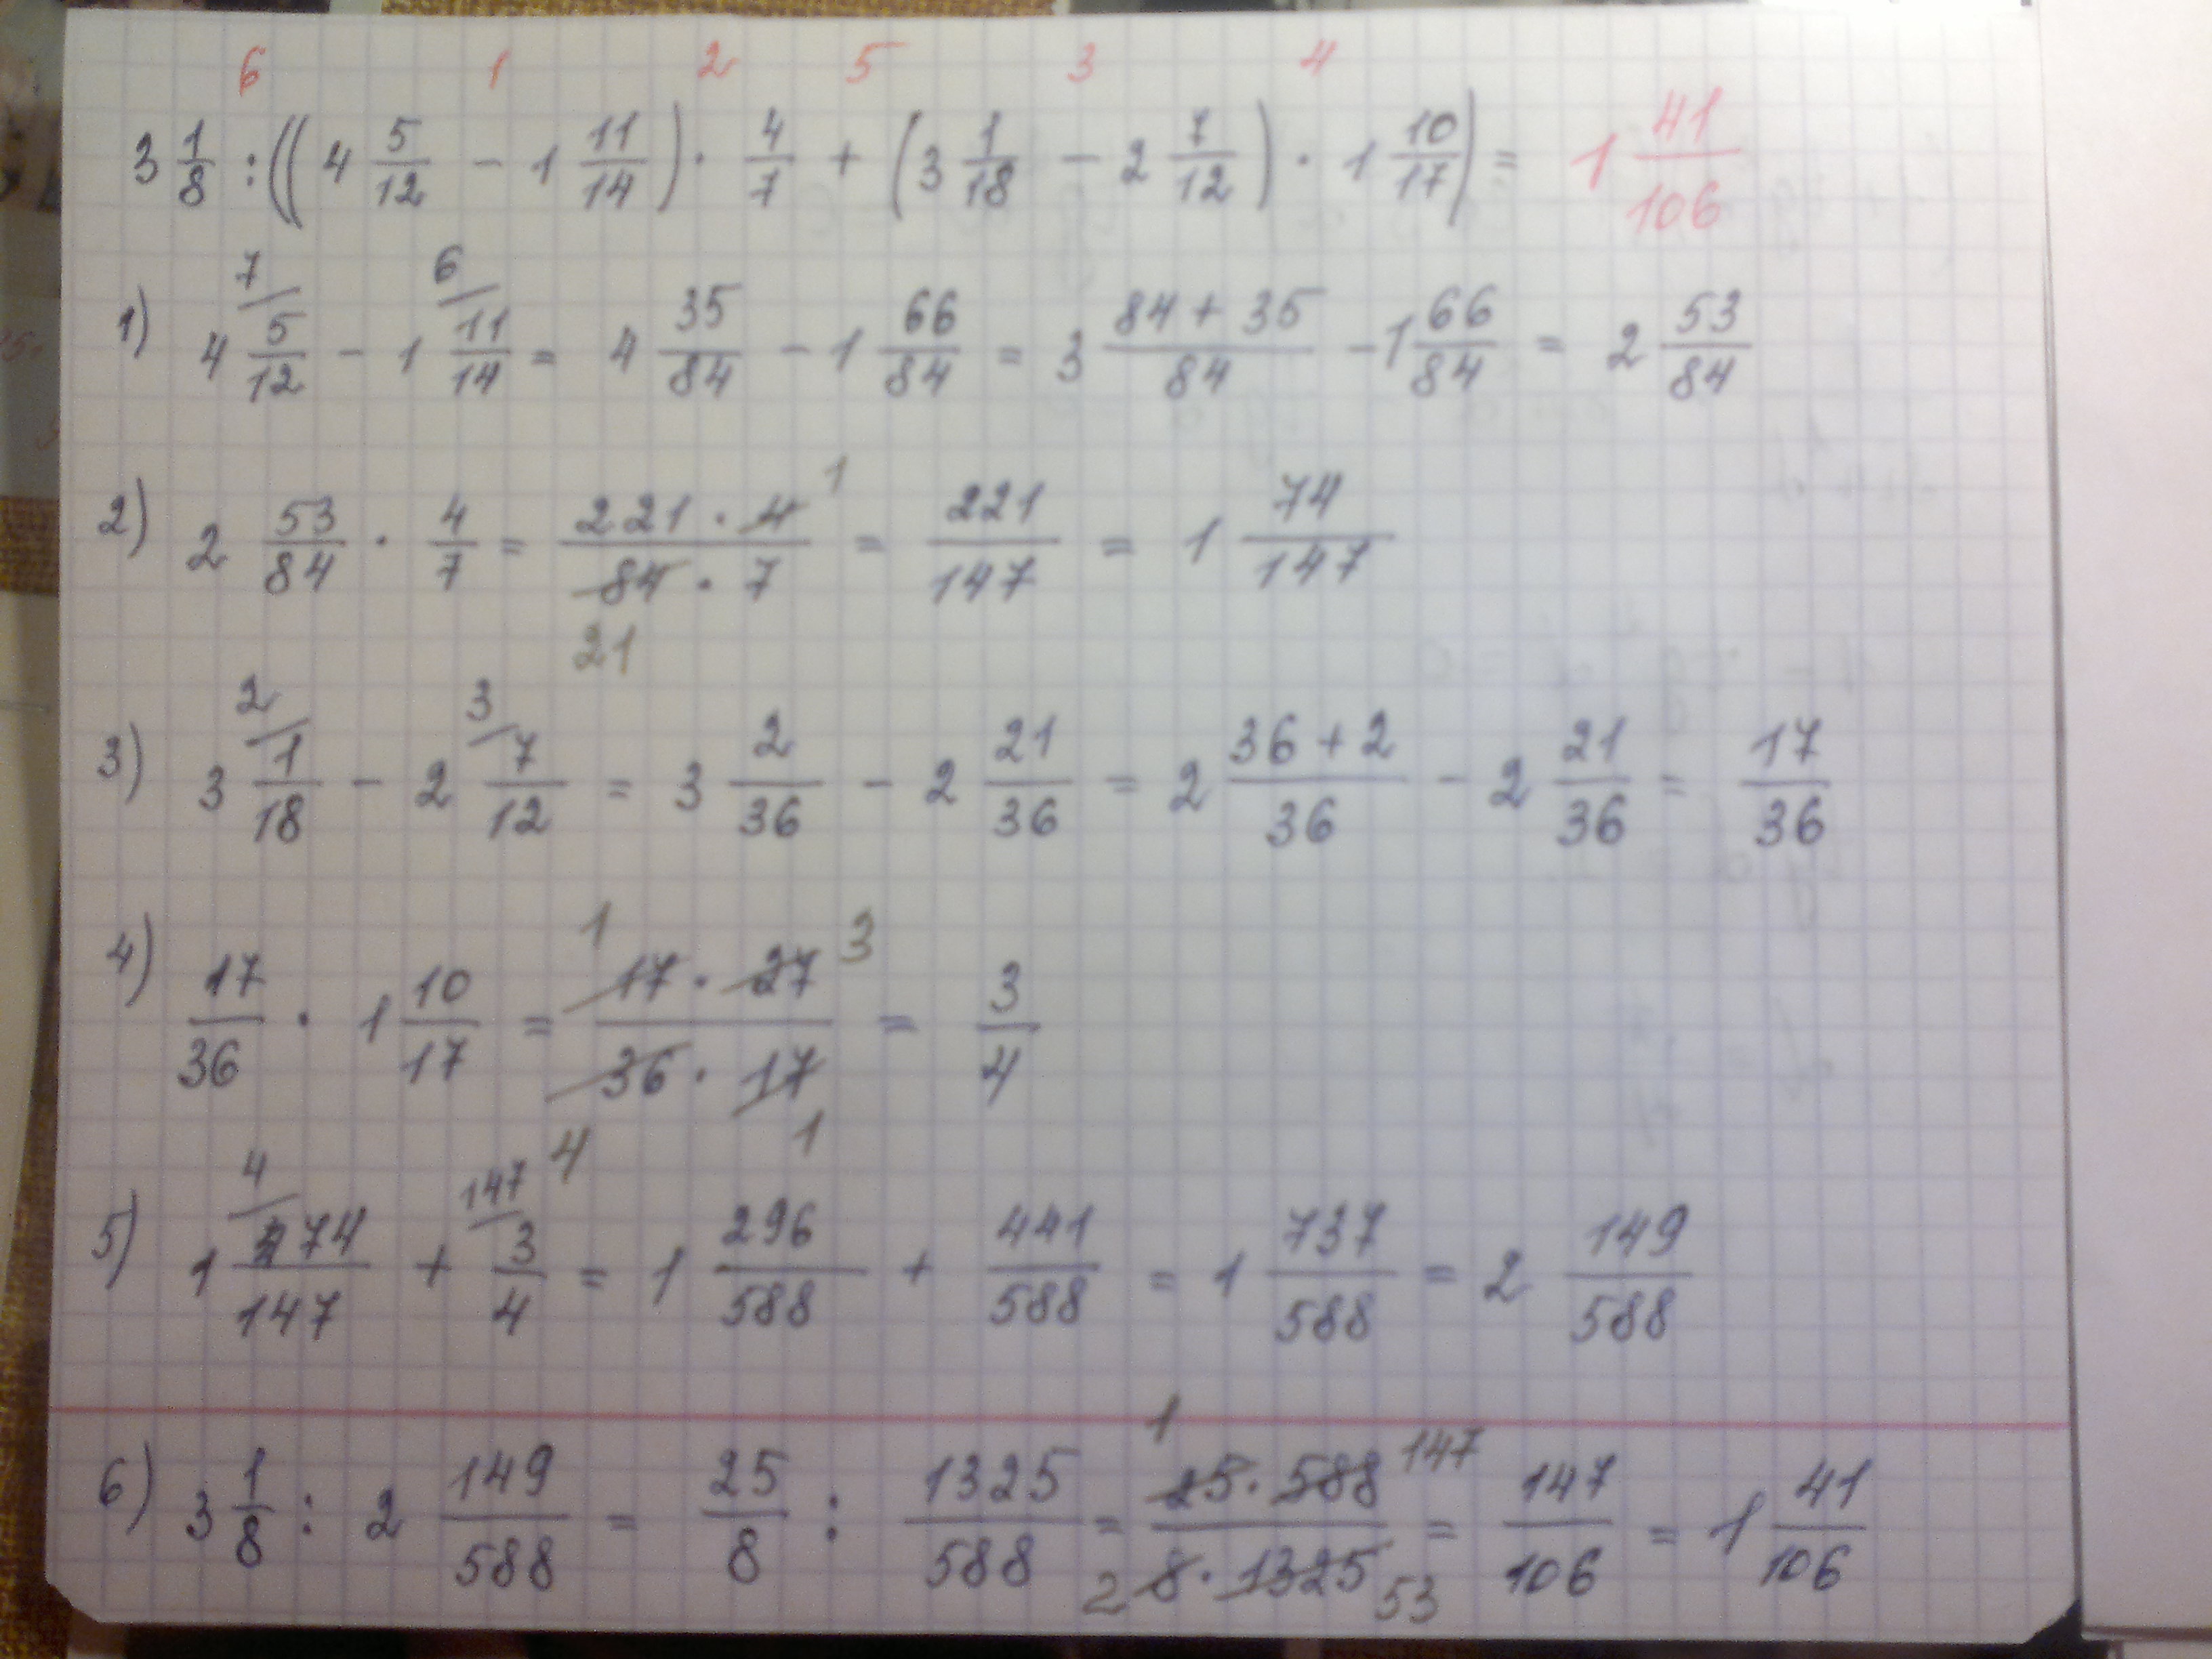 6 1 2 5 3 4
3 1/8 : ((4 5/12 - 1 11/14) · 4/7 + (3 1/18 - 2 7/12) · 1 10/17) = 1 41/106
1) 4 7/ 5/12 - 1 6/ 11/14 = 4 35/84 - 1 66/84 = 3 (84 + 35)/84 - 1 66/84 = 2 53/84
2) 2 53/84 · 4/7 = (221 · 4 1)/(84 21 · 7) = 221/147 = 1 74/147
3) 3 2/ 1/18 - 2 3/ 7/12 = 3 2/36 - 2 21/36 = 2 (36 + 2)/36 - 2 21/36 = 17/36
4) 17/36 · 1 10/17 = (1 17 · 27 3)/(4 36 · 17 1) = 3/4
5) 1 4/ 74/147 + 147/ 3/4 = 1 296/588 + 441/588 = 1 737/588 = 2 149/588
6) 3 1/8 : 2 149/588 = 25/8 : 1325/588 = (1 25 · 588 147)/(2 8 · 1325 53) = 147/106 = 1 41/106